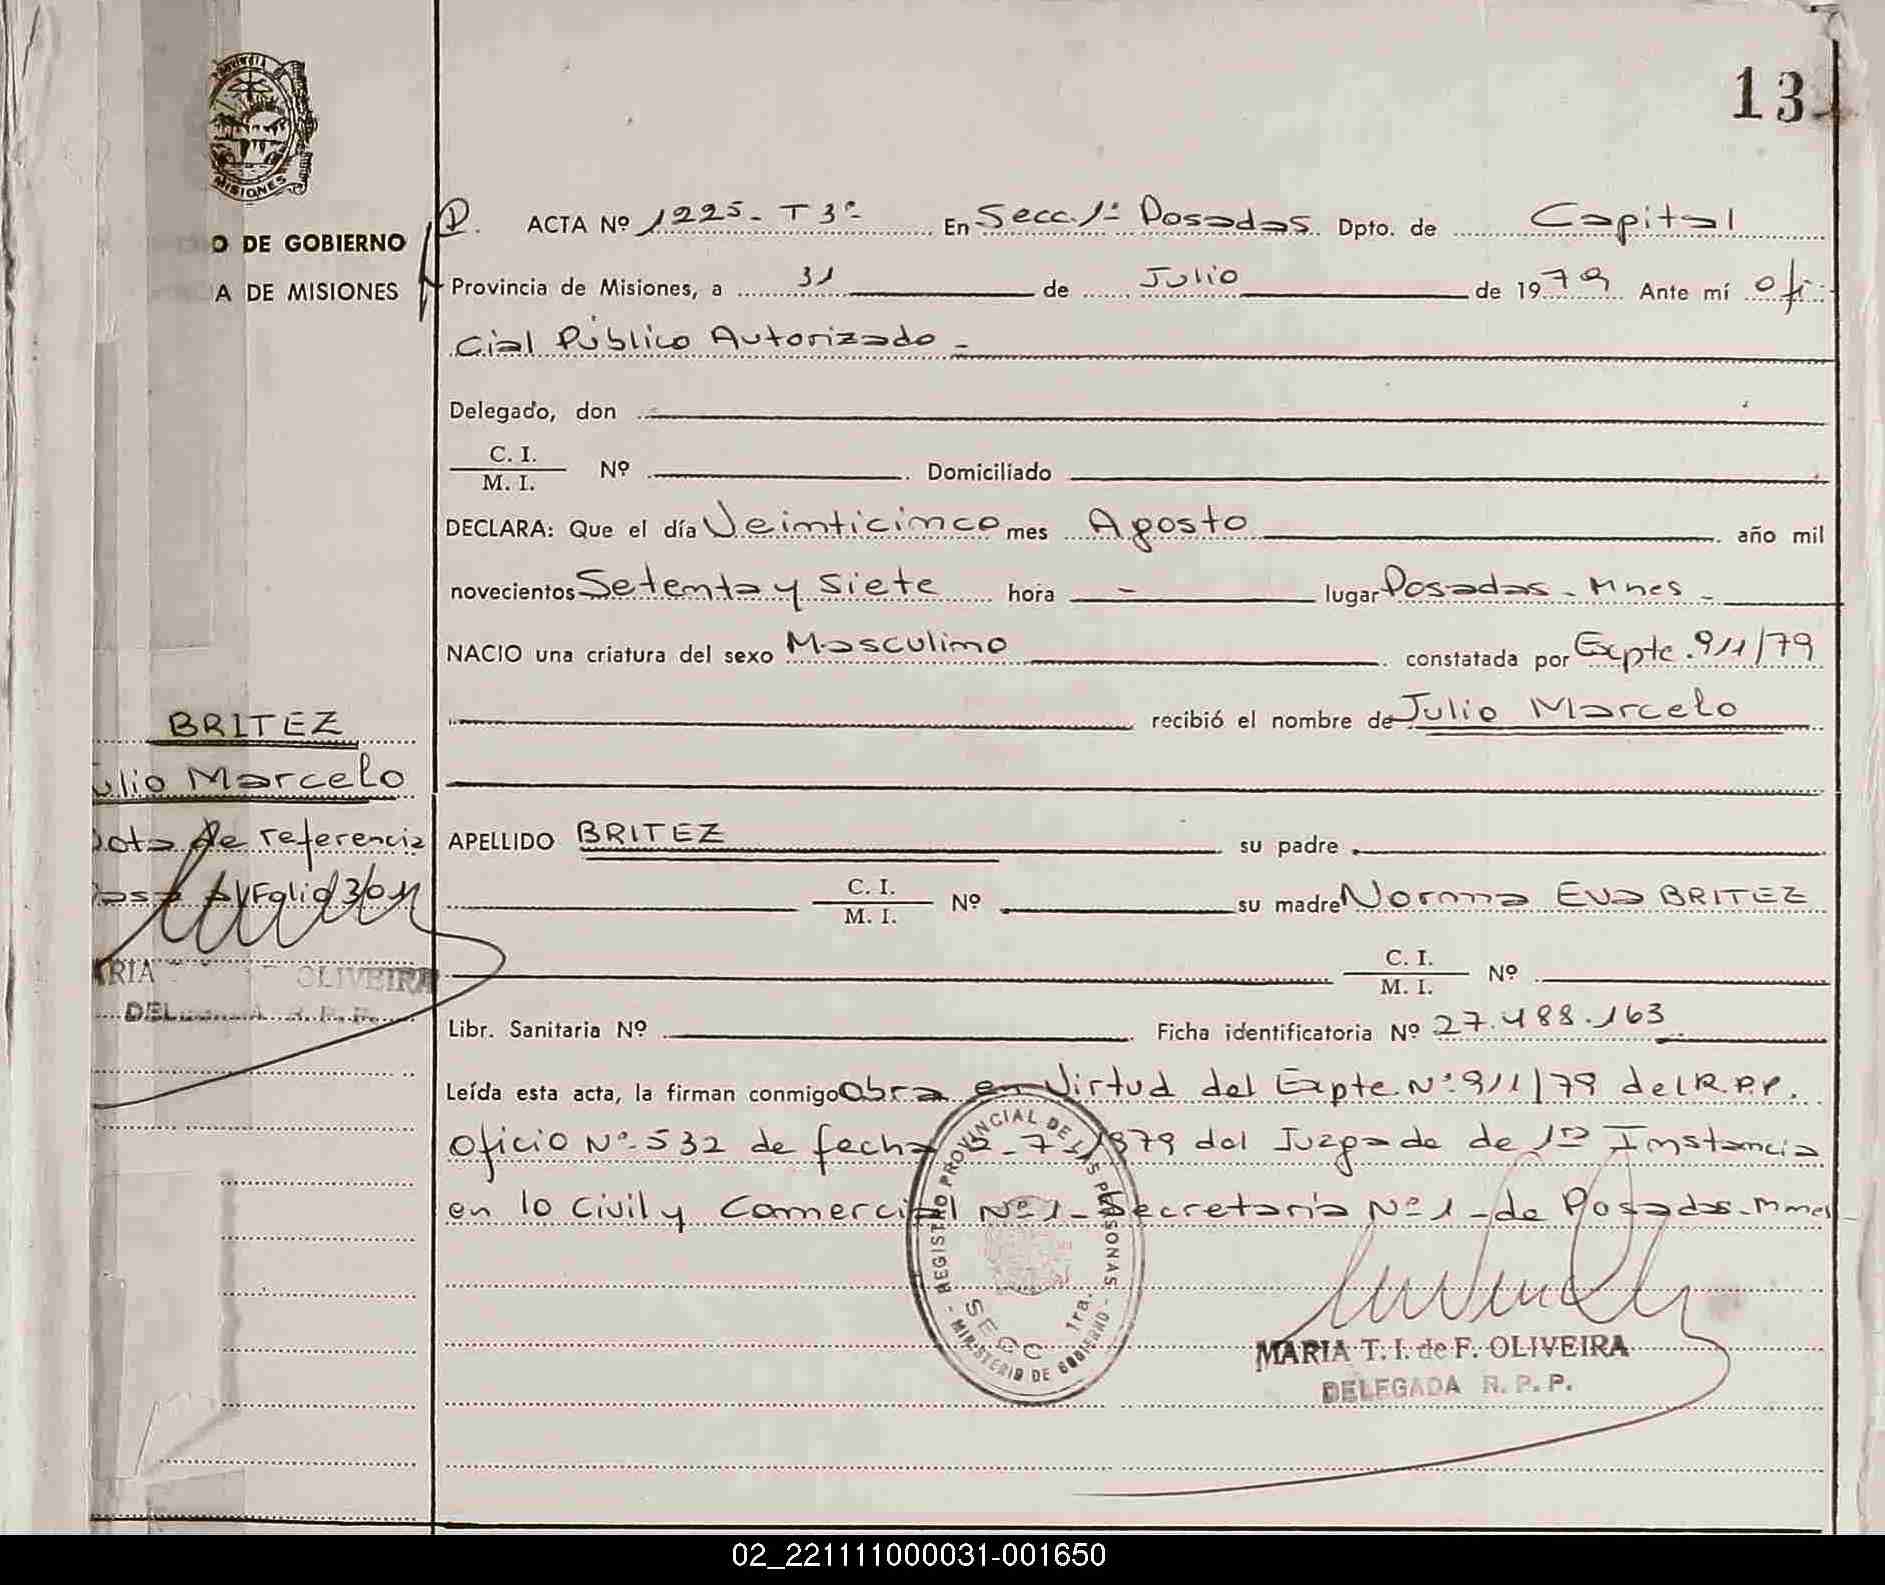 13
PROVINCIA DE
MISIONES
O DE GOBIERNO
A DE MISIONES
ACTA Nº 1225 - T 3º - En Secc. 1ª Posadas Dpto. de Capital
Provincia de Misiones, a 31 de Julio de 1979 Ante mí Ofi
cial Público Autorizado -
Delegado, don
C. I.
M. I. Nº Domiciliado
DECLARA: Que el día Veinticinco mes Agosto año mil
novecientos Setenta y Siete hora - lugar Posadas - Mnes -
NACIO una criatura del sexo Masculino constatada por Expte. 911/79
recibió el nombre de Julio Marcelo
BRITEZ
ulio Marcelo
ota de referencia
asa al Folio 301
RIA OLIVEIRA
DEL R. P. P.
APELLIDO BRITEZ su padre
C. I.
M. I. Nº su madre Norma Eva BRITEZ
C. I.
M. I. Nº
Libr. Sanitaria Nº Ficha identificatoria Nº 27.488.163
Leída esta acta, la firman conmigo Obra en Virtud del Expte. Nº 911/79 del R.P.P.
Oficio Nº 532 de fecha 7 1979 del Juzgado de 1ra Instancia
en lo Civil y Comercial Nº 1 - Secretaria Nº 1 - de Posadas - Mnes -
REGISTRO PROVINCIAL DE LAS PERSONAS
SECC 1ra.
- MINISTERIO DE GOBIERNO -
MARIA T. I. de F. OLIVEIRA
DELEGADA R. P. P.
02_221111000031-001650